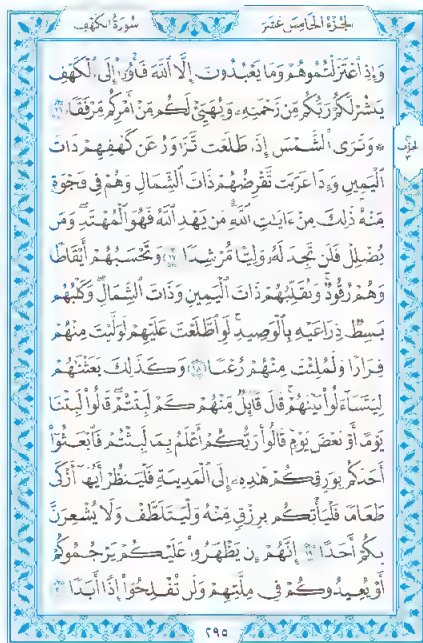 الجزء الخامس عشر
سورة الكهف
وَإِذِ ٱعْتَزَلْتُمُوهُمْ وَمَا يَعْبُدُونَ إِلَّا ٱللَّهَ فَأْوُۥٓا۟ إِلَى ٱلْكَهْفِ
يَنشُرْ لَكُمْ رَبُّكُم مِّن رَّحْمَتِهِۦ وَيُهَيِّئْ لَكُم مِّنْ أَمْرِكُم مِّرْفَقًا ١٦
۞ وَتَرَى ٱلشَّمْسَ إِذَا طَلَعَت تَّزَٰوَرُ عَن كَهْفِهِمْ ذَاتَ
ٱلْيَمِينِ وَإِذَا غَرَبَت تَّقْرِضُهُمْ ذَاتَ ٱلشِّمَالِ وَهُمْ فِى فَجْوَةٍ
مِّنْهُ ذَٰلِكَ مِنْ ءَايَٰتِ ٱللَّهِ مَن يَهْدِ ٱللَّهُ فَهُوَ ٱلْمُهْتَدِ وَمَن
يُضْلِلْ فَلَن تَجِدَ لَهُۥ وَلِيًّا مُّرْشِدًا ١٧ وَتَحْسَبُهُمْ أَيْقَاظًا
وَهُمْ رُقُودٌ وَنُقَلِّبُهُمْ ذَاتَ ٱلْيَمِينِ وَذَاتَ ٱلشِّمَالِ وَكَلْبُهُم
بَٰسِطٌ ذِرَاعَيْهِ بِٱلْوَصِيدِ لَوِ ٱطَّلَعْتَ عَلَيْهِمْ لَوَلَّيْتَ مِنْهُمْ
فِرَارًا وَلَمُلِئْتَ مِنْهُمْ رُعْبًا ١٨ وَكَذَٰلِكَ بَعَثْنَٰهُمْ
لِيَتَسَآءَلُوا۟ بَيْنَهُمْ قَالَ قَآئِلٌ مِّنْهُمْ كَمْ لَبِثْتُمْ قَالُوا۟ لَبِثْنَا
يَوْمًا أَوْ بَعْضَ يَوْمٍ قَالُوا۟ رَبُّكُمْ أَعْلَمُ بِمَا لَبِثْتُمْ فَٱبْعَثُوٓا۟
أَحَدَكُم بِوَرِقِكُمْ هَٰذِهِۦٓ إِلَى ٱلْمَدِينَةِ فَلْيَنظُرْ أَيُّهَآ أَزْكَىٰ
طَعَامًا فَلْيَأْتِكُم بِرِزْقٍ مِّنْهُ وَلْيَتَلَطَّفْ وَلَا يُشْعِرَنَّ
بِكُمْ أَحَدًا ١٩ إِنَّهُمْ إِن يَظْهَرُوا۟ عَلَيْكُمْ يَرْجُمُوكُمْ
أَوْ يُعِيدُوكُمْ فِى مِلَّتِهِمْ وَلَن تُفْلِحُوٓا۟ إِذًا أَبَدًا ٢٠
٢٩٥